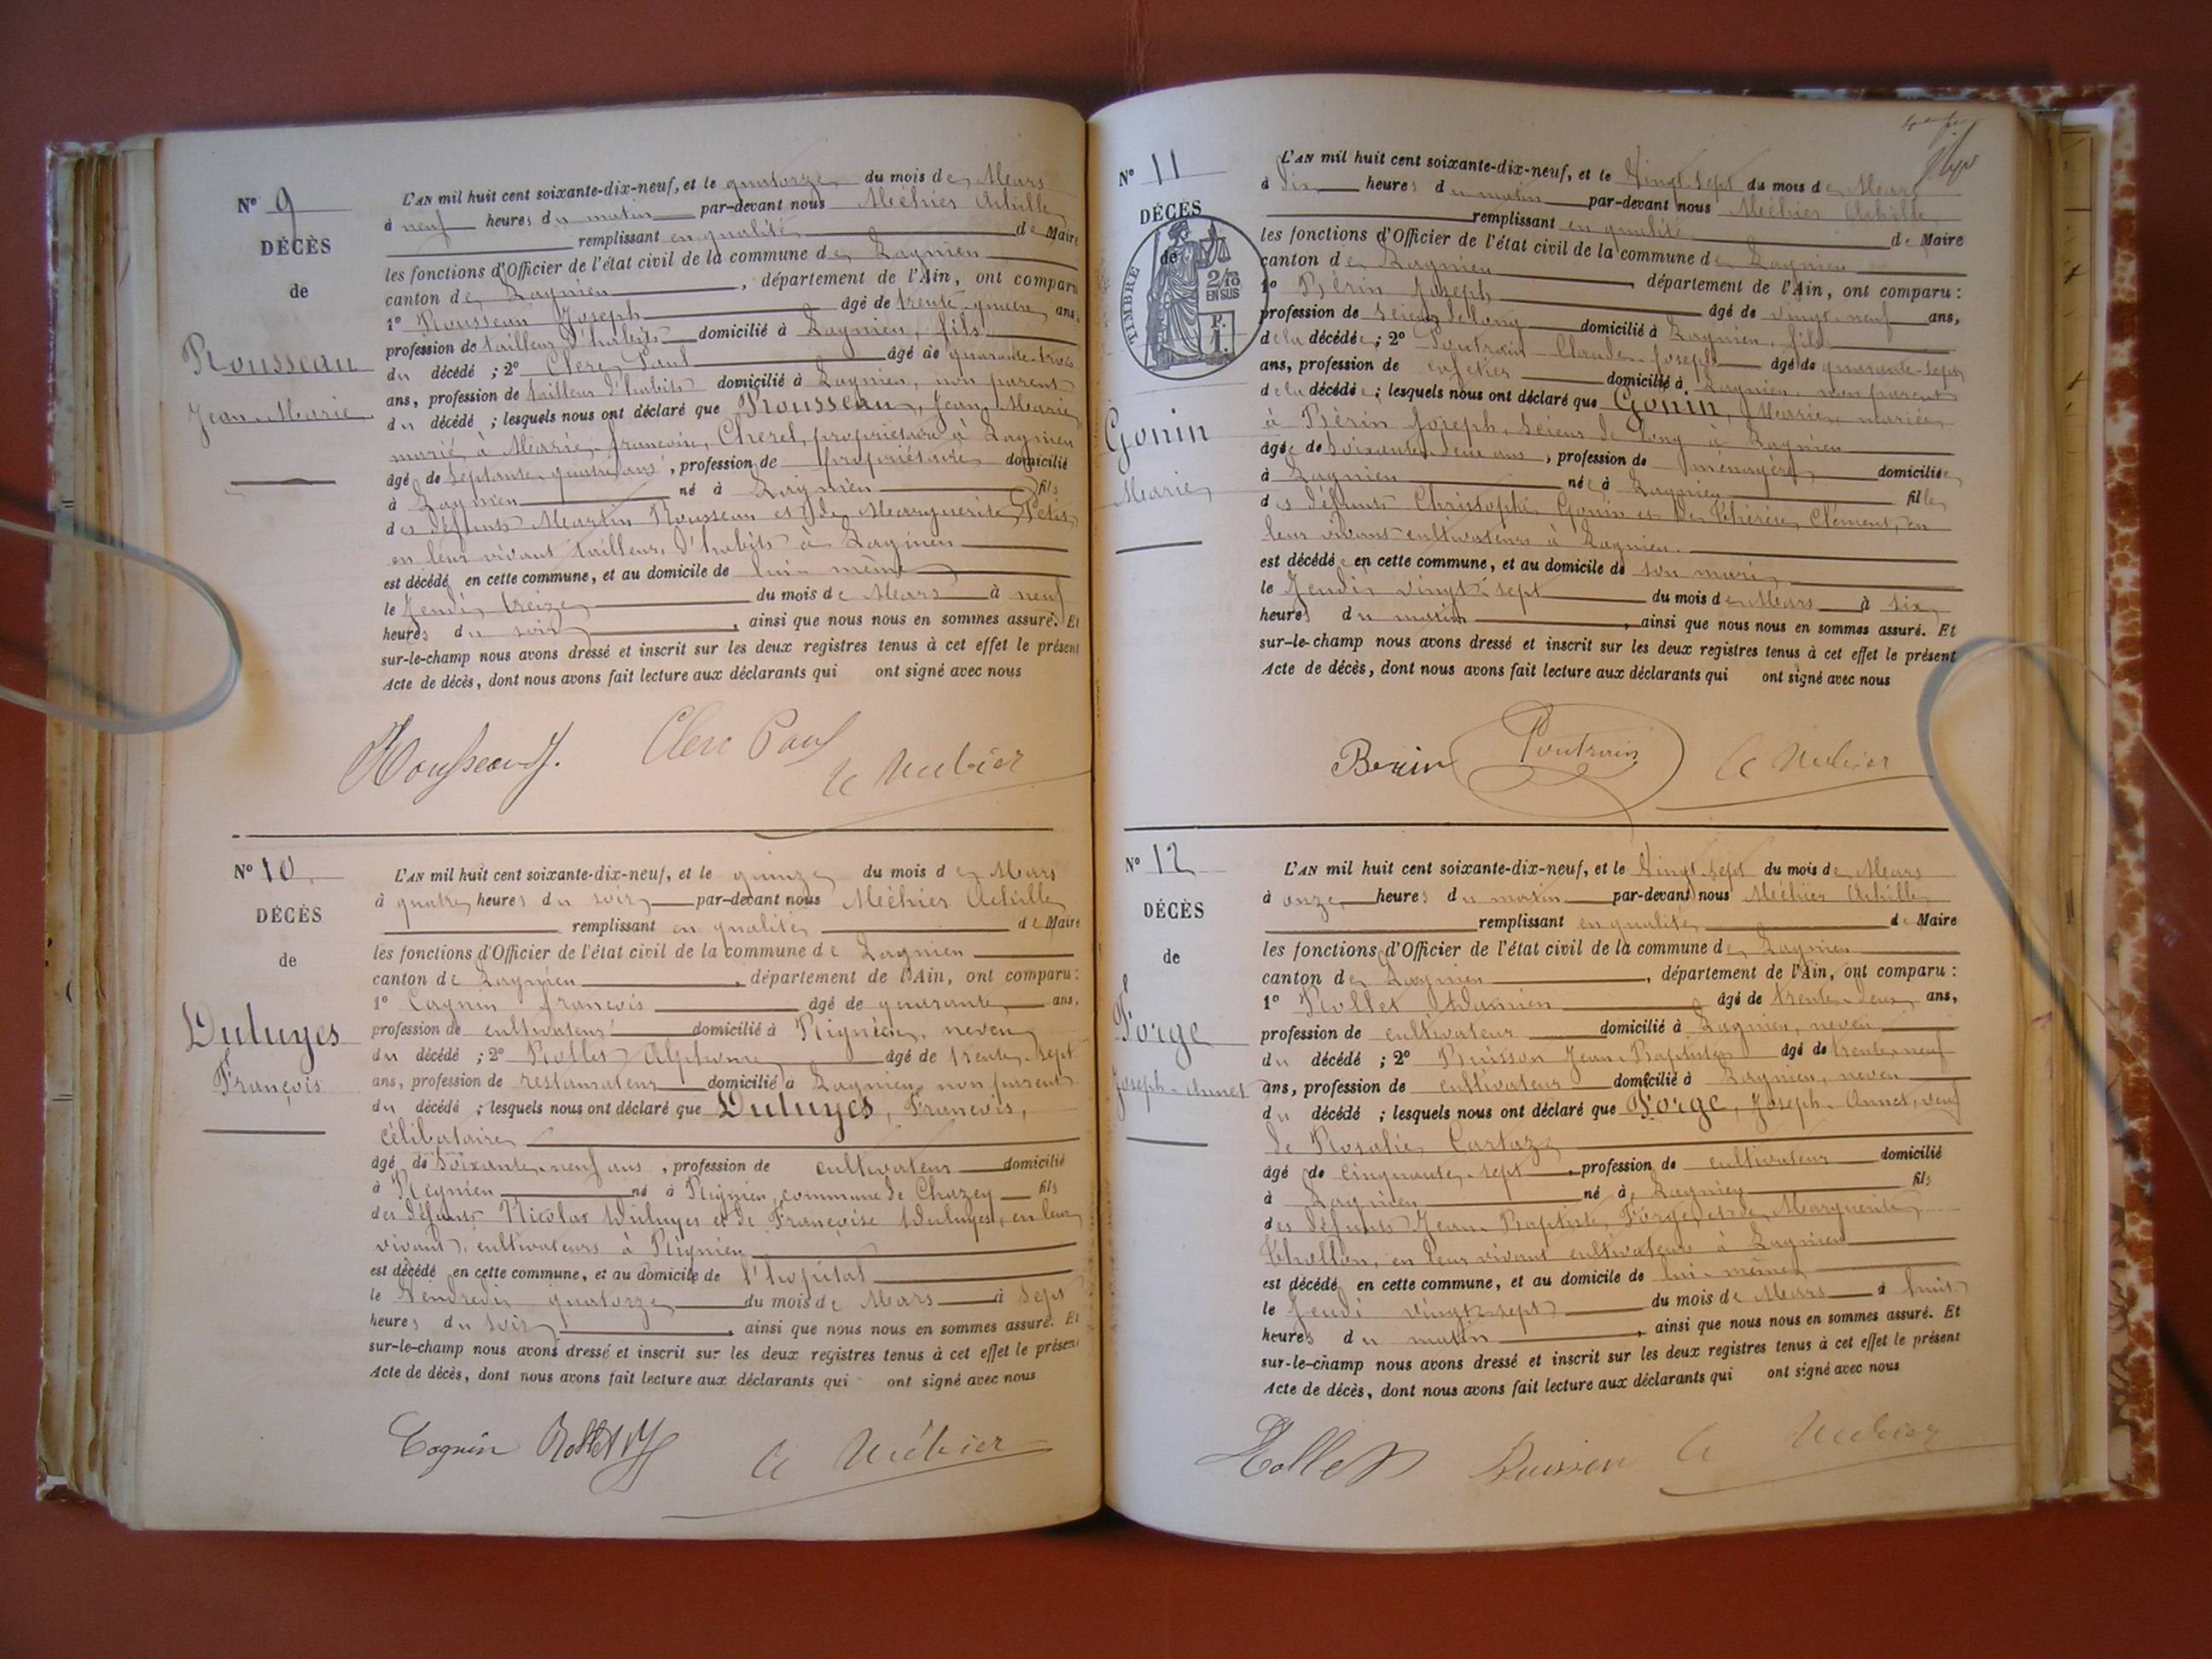 N° 9
DÉCÈS
de
Rousseau
Jean-Marie
L'AN mil huit cent soixante-dix-neuf, et le quatorze du mois de Mars
à neuf heures du matin par-devant nous Méhier Achille
remplissant en qualité de Maire
les fonctions d'Officier de l'état civil de la commune de Lagnieu
canton de Lagnieu, département de l'Ain, ont comparu
1° Rousseau Joseph âgé de trente-quatre ans,
profession de tailleur d'habits domicilié à Lagnieu, fils
du décédé ; 2° Clerc Paul âgé de quarante-trois
ans, profession de tailleur d'habits domicilié à Lagnieu, non parent
du décédé ; lesquels nous ont déclaré que Rousseau, Jean Marie
marié à Marie-françoise, Cherel, propriétaire à Lagnieu
âgé de septante-quatre ans, profession de propriétaire domicilié
à Lagnieu né à Lagnieu fils
des défunts Martin Rousseau et de Marguerite Petit,
en leur vivant tailleurs d'habits à Lagnieu
est décédé en cette commune, et au domicile de lui-même
le Jeudi treize du mois de Mars à neuf
heures du soir, ainsi que nous nous en sommes assuré. Et
sur-le-champ nous avons dressé et inscrit sur les deux registres tenus à cet effet le présent
Acte de décès, dont nous avons fait lecture aux déclarants qui ont signé avec nous
Rousseau J. Clerc Paul A Méhier
N° 10
DÉCÈS
de
Duluyes
François
L'AN mil huit cent soixante-dix-neuf, et le quinze du mois de Mars
à quatre heures du soir par-devant nous Méhier Achille
remplissant en qualité de Maire
les fonctions d'Officier de l'état civil de la commune de Lagnieu
canton de Lagnieu, département de l'Ain, ont comparu :
1° Cagnin françois âgé de quarante ans,
profession de cultivateur domicilié à Rignieu, neveu
du décédé ; 2° Rollet Alphonse âgé de trente-sept
ans, profession de restaurateur domicilié à Lagnieu non parent
du décédé ; lesquels nous ont déclaré que Duluyes, François,
célibataire
âgé de soixante-neuf ans, profession de cultivateur domicilié
à Rignieu né à Rignieu, commune de Chazey fils
des défunts Nicolas Duluyes et de Françoise Duluyes, en leur
vivant, cultivateurs à Rignieu
est décédé en cette commune, et au domicile de l'hôpital
le Vendredi quatorze du mois de Mars à sept
heures du soir, ainsi que nous nous en sommes assuré. Et
sur-le-champ nous avons dressé et inscrit sur les deux registres tenus à cet effet le présent
Acte de décès, dont nous avons fait lecture aux déclarants qui ont signé avec nous
Cognin Rollet A Méhier
N° 11
DÉCÈS
de
TIMBRE
2/10
EN SUS
Gonin
Marie
L'AN mil huit cent soixante-dix-neuf, et le Vingt-sept du mois de Mars
à dix heures du matin par-devant nous Méhier Achille
remplissant en qualité de Maire
les fonctions d'Officier de l'état civil de la commune de Lagnieu
canton de Lagnieu, département de l'Ain, ont comparu :
1° Bérin Joseph âgé de vingt-neuf ans,
profession de scieur de long domicilié à Lagnieu, fils
de la décédée ; 2° Poutrain Claude-Joseph âgé de quarante-sept
ans, profession de cafetier domicilié à Lagnieu, non parent
de la décédée ; lesquels nous ont déclaré que Gonin, Marie, mariée
à Bérin Joseph, scieur de long à Lagnieu
âgée de soixante-deux ans, profession de ménagère domiciliée
à Lagnieu née à Lagnieu fille
des défunts Christophe Gonin et de Thérèse Clément, en
leur vivant cultivateurs à Lagnieu.
est décédée en cette commune, et au domicile de son mari
le Jeudi vingt-sept du mois de Mars à six
heures du matin, ainsi que nous nous en sommes assuré. Et
sur-le-champ nous avons dressé et inscrit sur les deux registres tenus à cet effet le présent
Acte de décès, dont nous avons fait lecture aux déclarants qui ont signé avec nous
Berin Poutrain A Méhier
N° 12
DÉCÈS
de
Forge
Joseph-Annet
L'AN mil huit cent soixante-dix-neuf, et le Vingt-sept du mois de Mars
à onze heures du matin par-devant nous Méhier Achille
remplissant en qualité de Maire
les fonctions d'Officier de l'état civil de la commune de Lagnieu
canton de Lagnieu, département de l'Ain, ont comparu :
1° Rollet Damien âgé de trente-deux ans,
profession de cultivateur domicilié à Lagnieu, neveu
du décédé ; 2° Buisson Jean-Baptiste âgé de trente-neuf
ans, profession de cultivateur domicilié à Lagnieu, neveu
du décédé ; lesquels nous ont déclaré que Forge, Joseph-Annet, veuf
de Rosalie Cartaz
âgé de cinquante-sept, profession de cultivateur domicilié
à Lagnieu né à Lagnieu fils
des défunts Jean-Baptiste Forge et de Marguerite
Chollon, en leur vivant cultivateurs à Lagnieu
est décédé en cette commune, et au domicile de lui-même
le Jeudi vingt-sept du mois de Mars à huit
heures du matin, ainsi que nous nous en sommes assuré. Et
sur-le-champ nous avons dressé et inscrit sur les deux registres tenus à cet effet le présent
Acte de décès, dont nous avons fait lecture aux déclarants qui ont signé avec nous
Rollet Buisson A Méhier